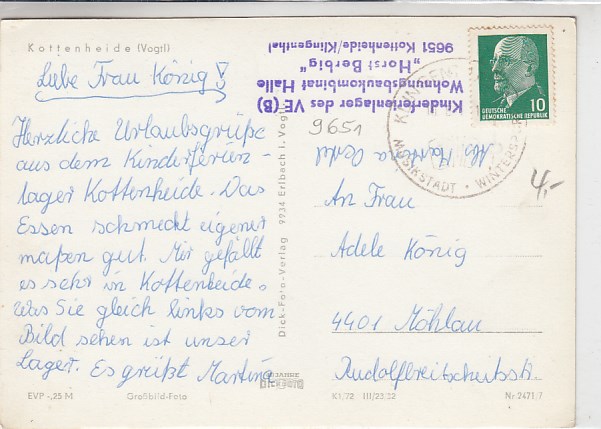 Kottenheide (Vogtl)
Liebe Frau König!
Herzliche Urlaubsgrüße
aus dem Kinderferien-
lager Kottenheide. Das
Essen schmeckt eigener
maßen gut. Mir gefällt
es sehr in Kottenheide.
Was Sie gleich links vom
Bild sehen ist unser
Lager. Es grüßt Martina
EVP -,25 M
Großbild-Foto
Dick-Foto-Verlag 9934 Erlbach i. Vogtl.
Kinderferienlager des VE (B)
Wohnungsbaukombinat Halle
„Horst Berbig"
9651 Kottenheide/Klingenthal
9651
Abs. Martina
DEUTSCHE
DEMOKRATISCHE REPUBLIK
10
MUSIKSTADT · WINTERSP
4,-
An Frau
Adele König
4401 Möhlau
Rudolfbreitscheitsstr.
K1/72 III/23,32
Nr. 2471/7